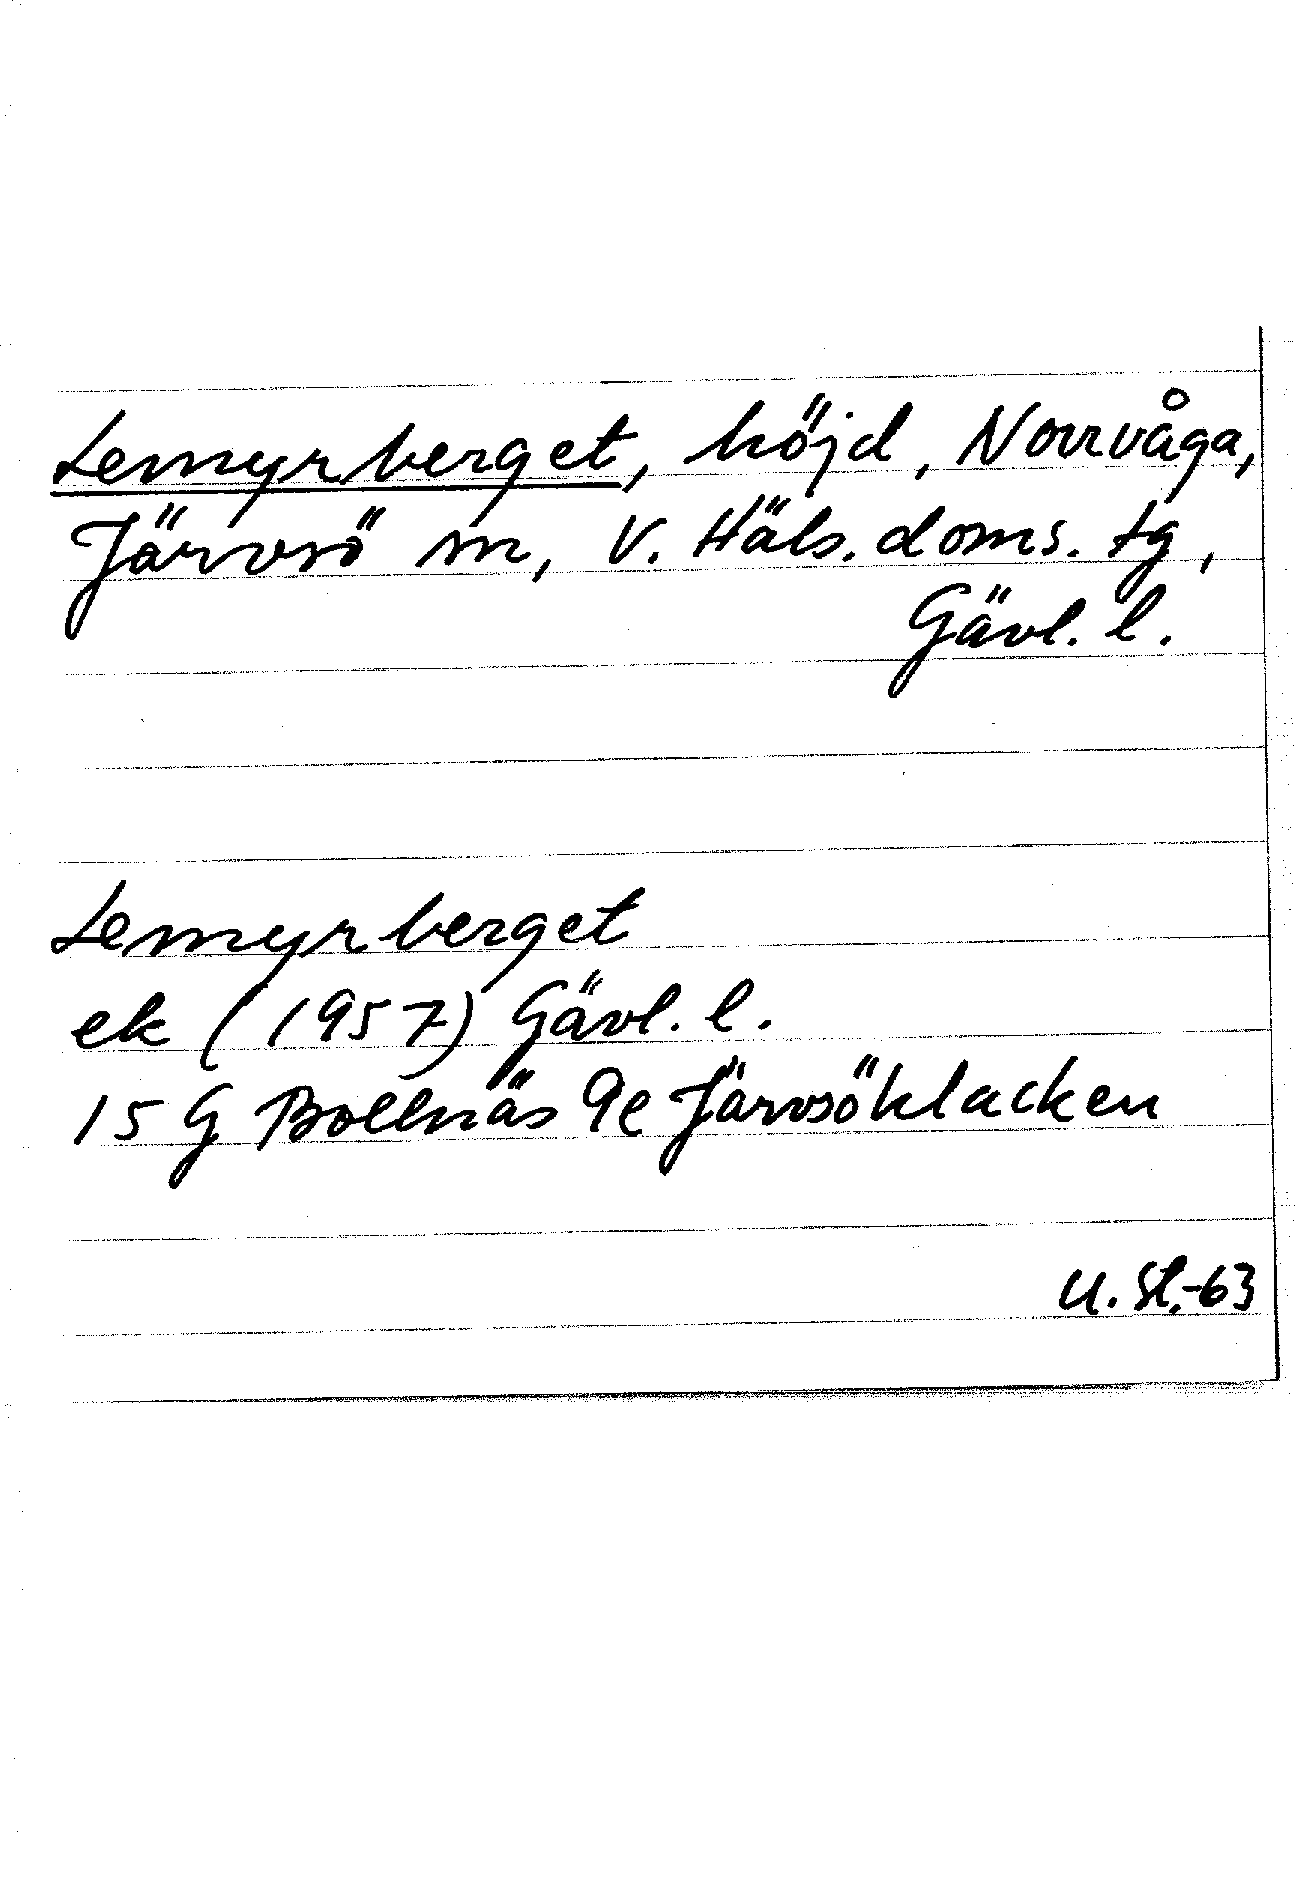 Lemyrberget, höjd, Norrvåga,
Järvsö sn, V. Häls. doms. tg,
Gävl. l.
Lemyrberget
ek (1957) Gävl. l.
15 G Bollnäs 9e Järvsöklacken
U. St.-63